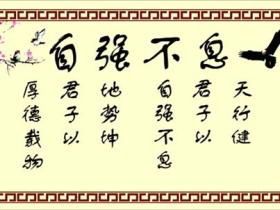 自强不息
天行健
君子以
自强不息
地势坤
君子以
厚德载物